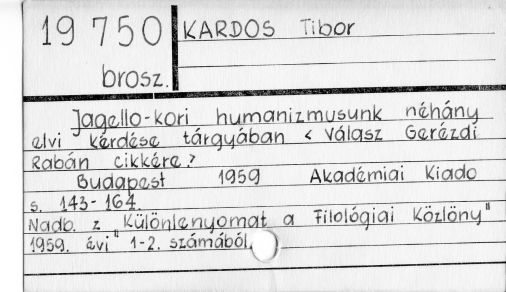 19 750
brosz.
KARDOS Tibor
Jagello-kori humanizmusunk néhány
elvi kérdése tárgyában < Válasz Gerézdi
Rabán cikkére.>
Budapest 1959 Akadémiai Kiado
s. 143-164.
Nadb. z "Különlenyomat a Filológiai Közlöny"
1959. évi " 1-2. számából.